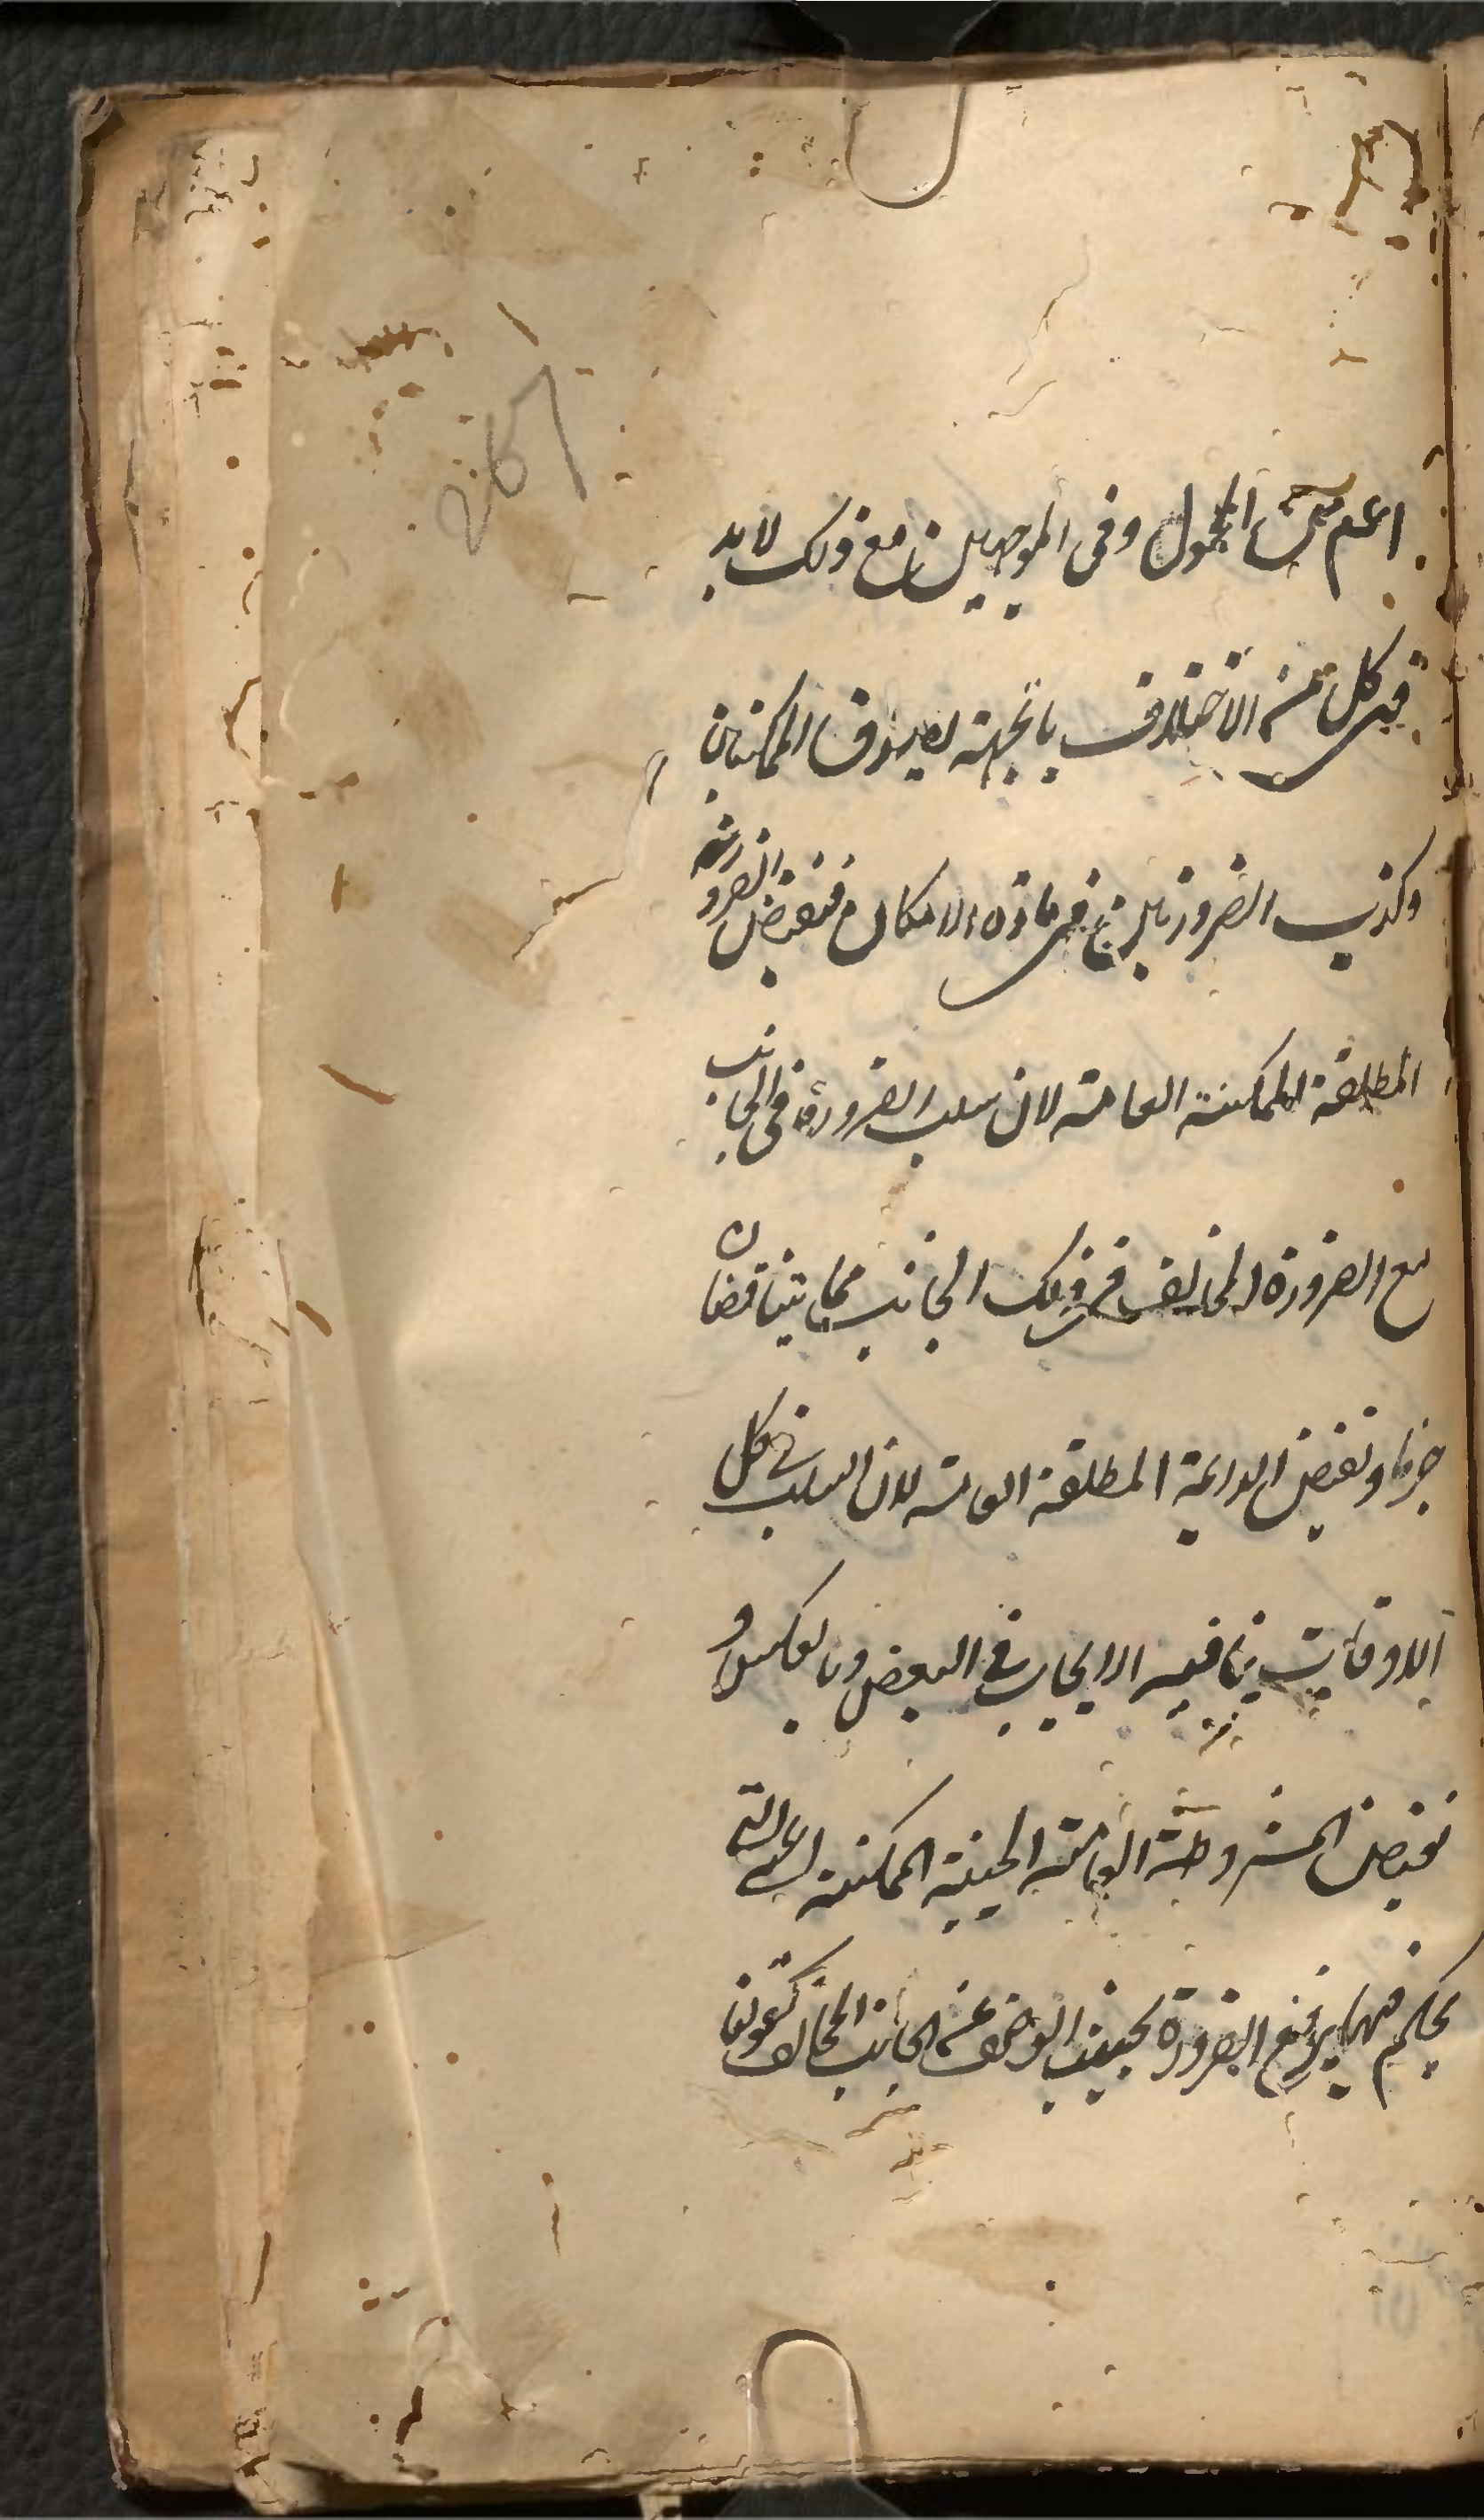 اعم من المحمول وفى الموجهتين مع ذلك لابد
فى كل من الاختلاف بالجهة لصدق الممكنتين
وكذب الضروريتين فى مادة الامكان فنقيض الضرورية
المطلقة الممكنة العامة لان سلب الضرورة فى الجانب
مع الضرورة المخالف فى ذلك الجانب مما يتناقضان
جزما ونقيض الدايمة المطلقة العامة لان السلب فى كل
الاوقات ينافيه الايجاب فى البعض وبالعكس و
نقيض المشروطة العامة الحينية الممكنة اعنى التى
يحكم فيها برفع الضرورة بحسب الوصف عن الجانب المخالف كقولنا